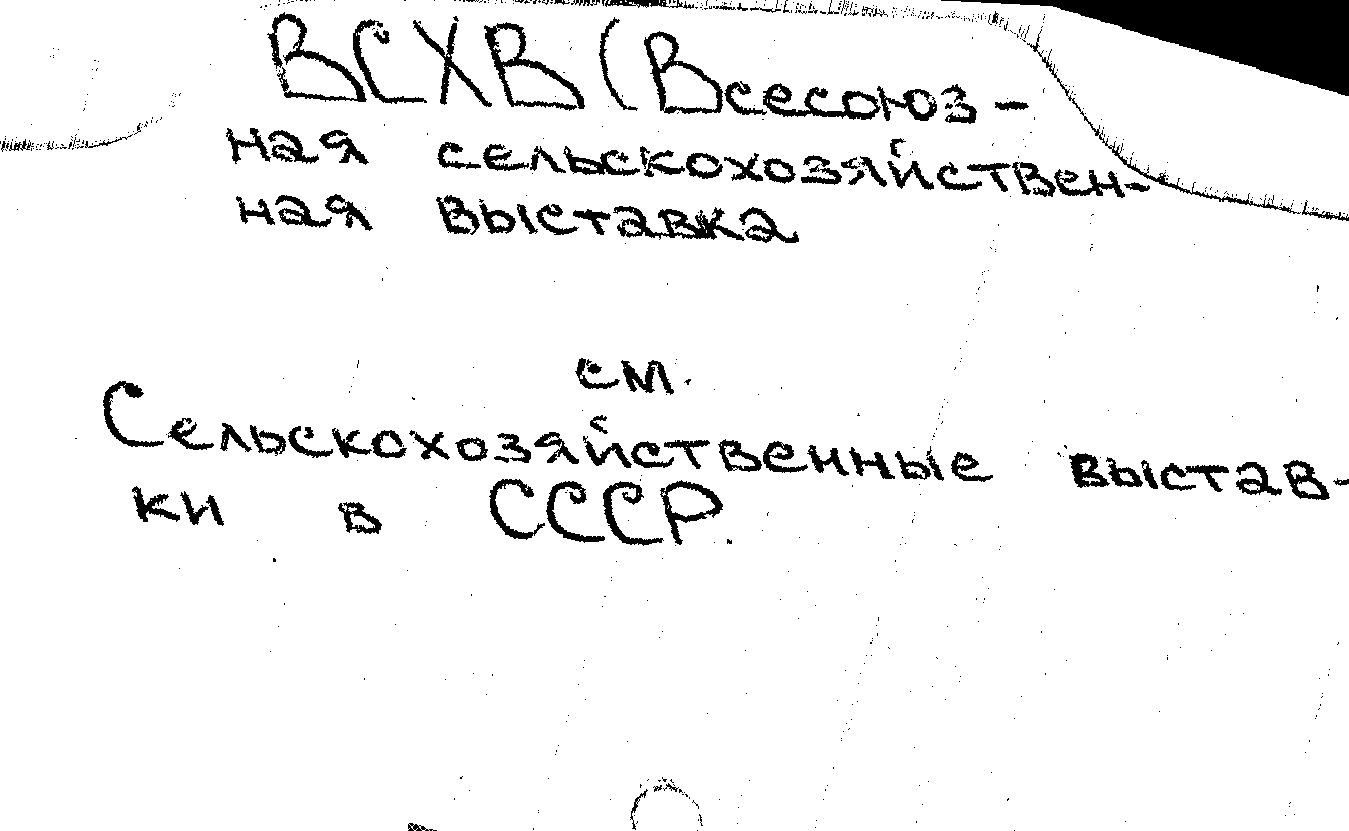 ВСХВ (Всесоюз-
ная сельскохозяйствен-
ная выставка
см.
Сельскохозяйственные выстав-
ки в СССР.